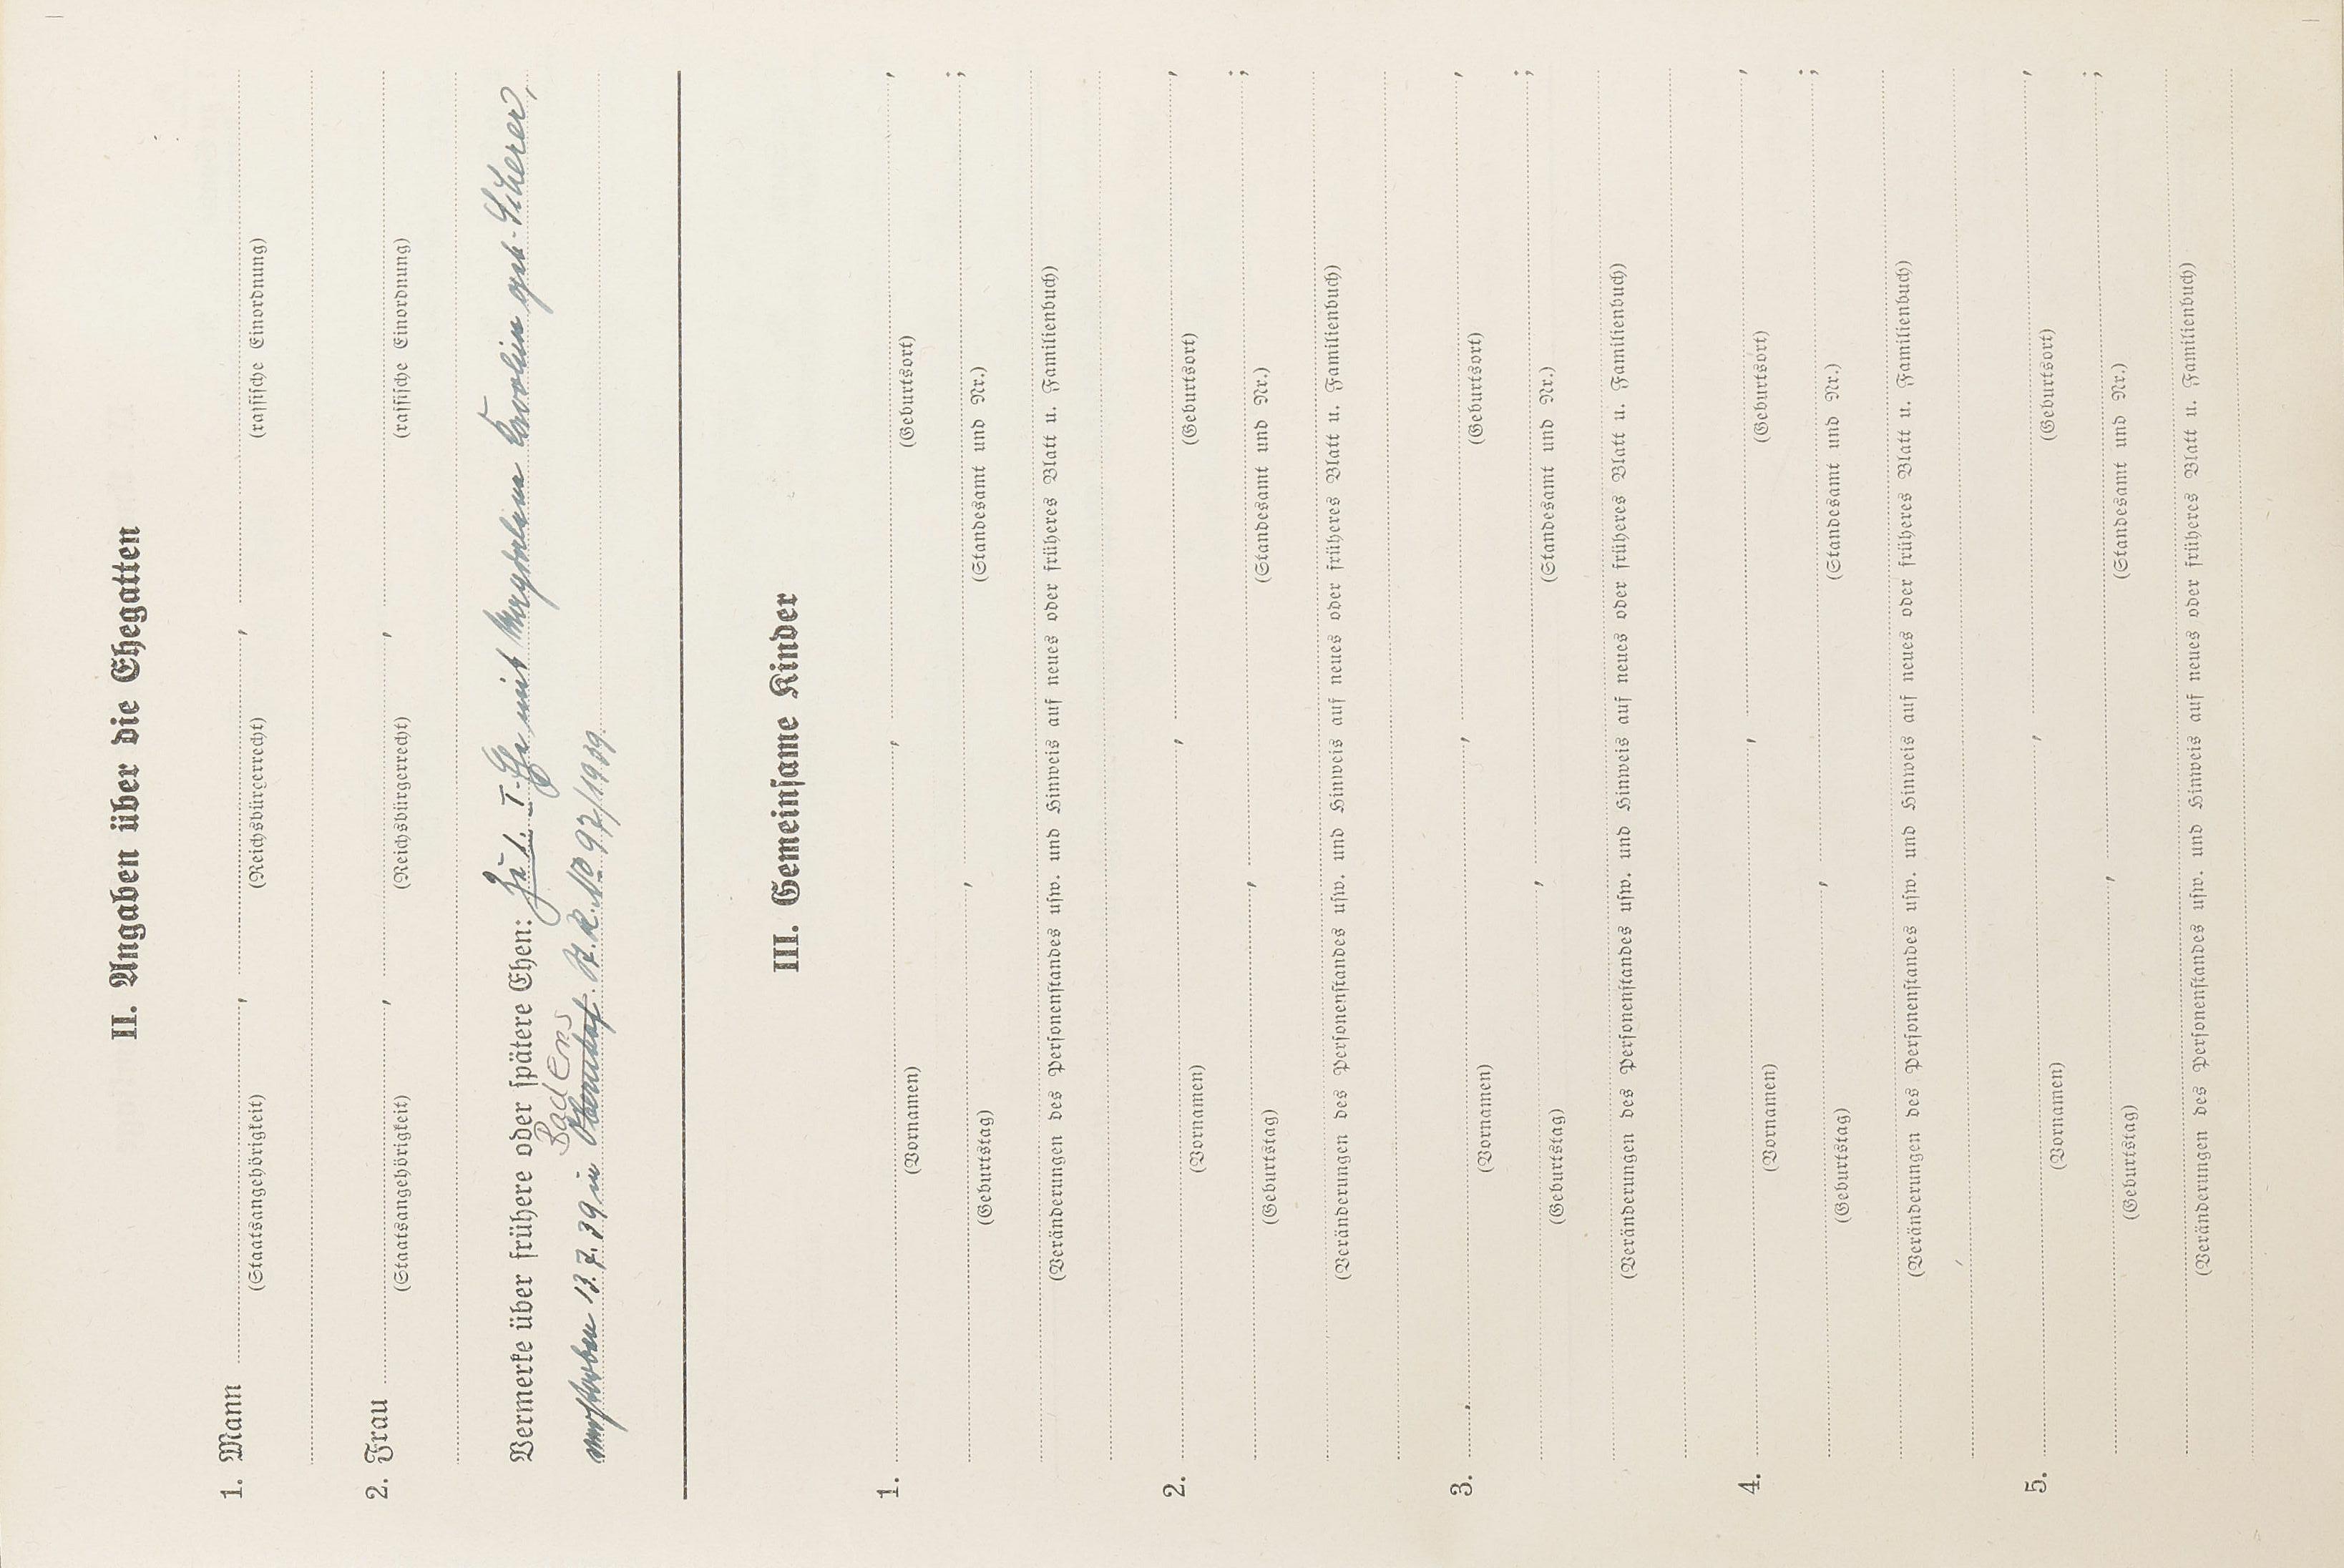 II. Angaben über die Ehegatten
1. Mann , ,
(Staatsangehörigkeit) (Reichsbürgerrecht) (rassische Einordnung)
2. Frau , ,
(Staatsangehörigkeit) (Reichsbürgerrecht) (rassische Einordnung)
Vermerke über frühere oder spätere Ehen: Zu 1. I. Ehe mit Magdalena Karolin geb. Scherer,
Badens
verstorben 13.7.39 in St.R. No 97/1939.
III. Gemeinsame Kinder
1. , ,
(Vornamen) (Geburtsort)
, ;
(Geburtstag) (Standesamt und Nr.)
(Veränderungen des Personenstandes usw. und Hinweis auf neues oder früheres Blatt u. Familienbuch)
2. , ,
(Vornamen) (Geburtsort)
, ;
(Geburtstag) (Standesamt und Nr.)
(Veränderungen des Personenstandes usw. und Hinweis auf neues oder früheres Blatt u. Familienbuch)
3. , ,
(Vornamen) (Geburtsort)
, ;
(Geburtstag) (Standesamt und Nr.)
(Veränderungen des Personenstandes usw. und Hinweis auf neues oder früheres Blatt u. Familienbuch)
4. , ,
(Vornamen) (Geburtsort)
, ;
(Geburtstag) (Standesamt und Nr.)
(Veränderungen des Personenstandes usw. und Hinweis auf neues oder früheres Blatt u. Familienbuch)
5. , ,
(Vornamen) (Geburtsort)
, ;
(Geburtstag) (Standesamt und Nr.)
(Veränderungen des Personenstandes usw. und Hinweis auf neues oder früheres Blatt u. Familienbuch)